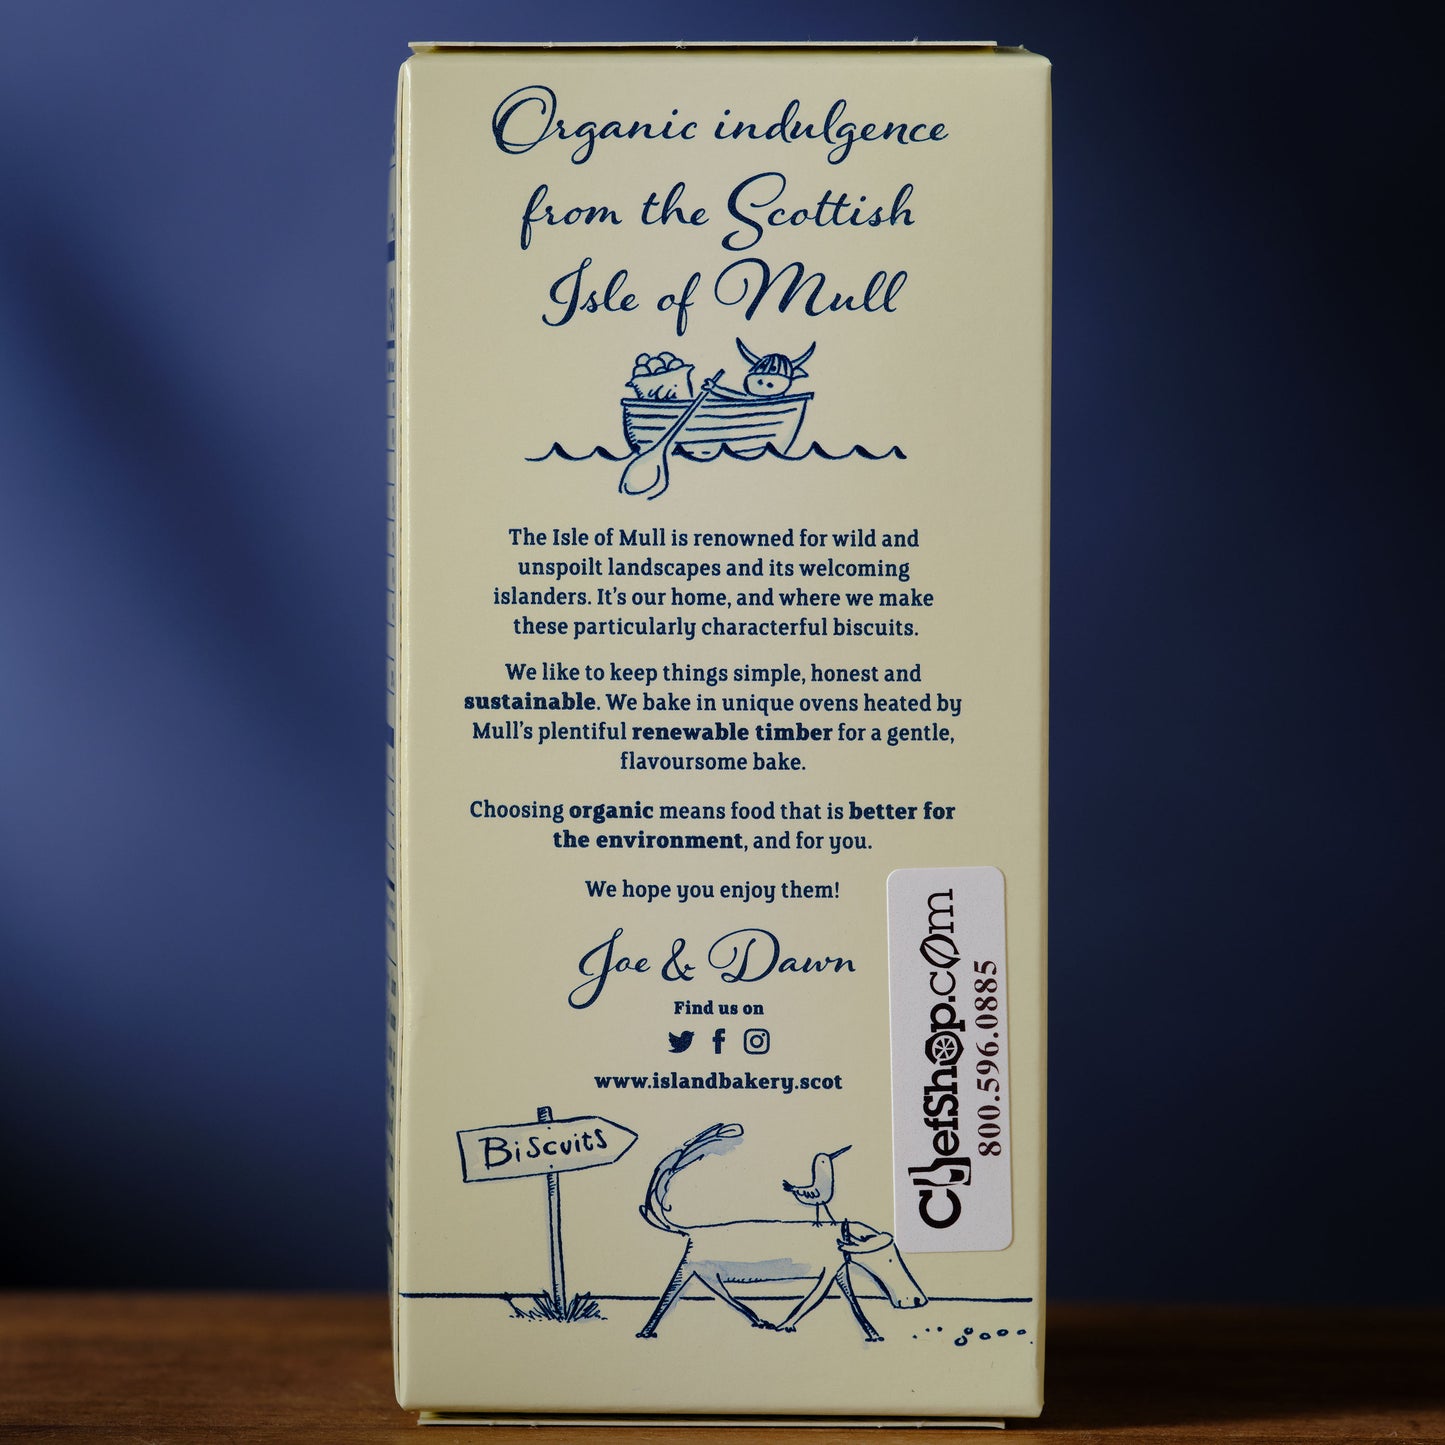 Organic indulgence
from the Scottish
Isle of Mull
The Isle of Mull is renowned for wild and
unspoilt landscapes and its welcoming
islanders. It's our home, and where we make
these particularly characterful biscuits.
We like to keep things simple, honest and
sustainable. We bake in unique ovens heated by
Mull's plentiful renewable timber for a gentle,
flavoursome bake.
Choosing organic means food that is better for
the environment, and for you.
We hope you enjoy them!
Joe & Dawn
Find us on
www.islandbakery.scot
Biscuits
ChefShop.com
800.596.0885